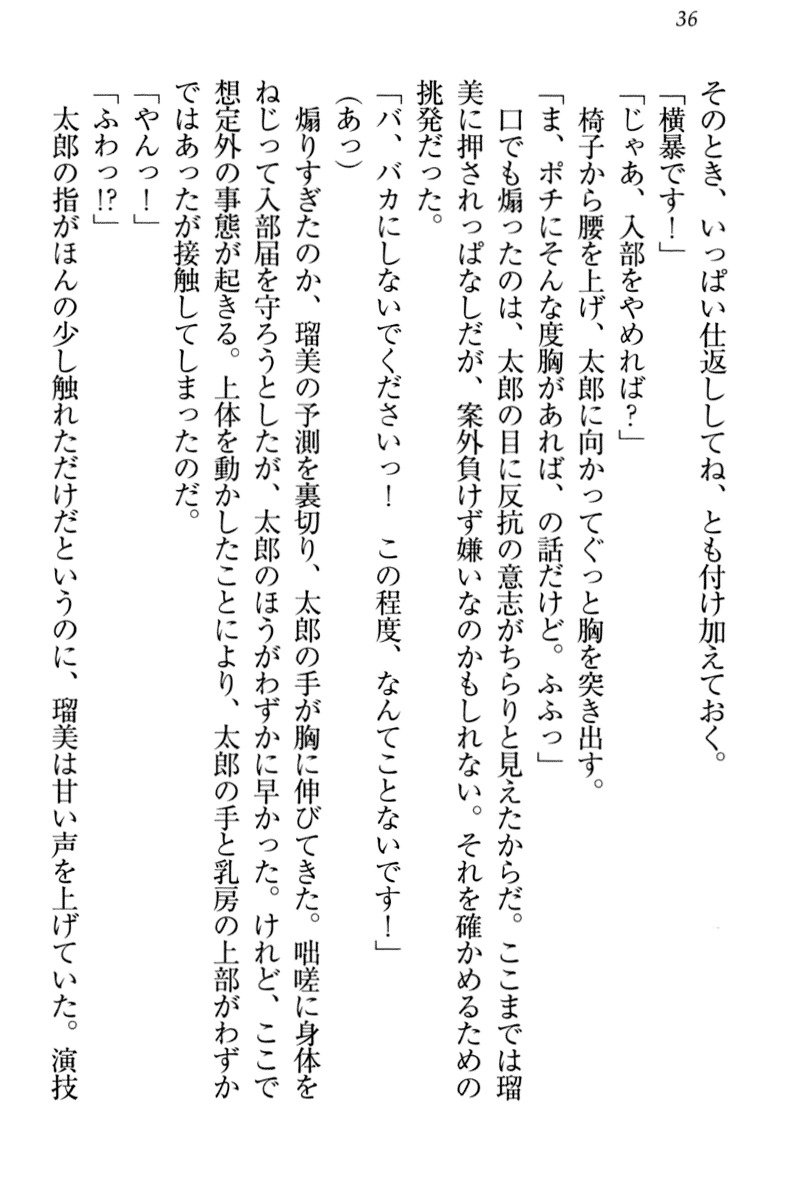 36
そのとき、いっぱい仕返ししてね、とも付け加えておく。
「横暴です！」
「じゃあ、入部をやめれば？」
椅子から腰を上げ、太郎に向かってぐっと胸を突き出す。
「ま、ポチにそんな度胸があれば、の話だけど。ふふっ」
口でも煽ったのは、太郎の目に反抗の意志がちらりと見えたからだ。ここまでは瑠
美に押されっぱなしだが、案外負けず嫌いなのかもしれない。それを確かめるための
挑発だった。
「バ、バカにしないでくださいっ！　この程度、なんてことないです！」
（あっ）
煽りすぎたのか、瑠美の予測を裏切り、太郎の手が胸に伸びてきた。咄嗟に身体を
ねじって入部届を守ろうとしたが、太郎のほうがわずかに早かった。けれど、ここで
想定外の事態が起きる。上体を動かしたことにより、太郎の手と乳房の上部がわずか
ではあったが接触してしまったのだ。
「やんっ！」
「ふわっ!?」
太郎の指がほんの少し触れただけだというのに、瑠美は甘い声を上げていた。演技